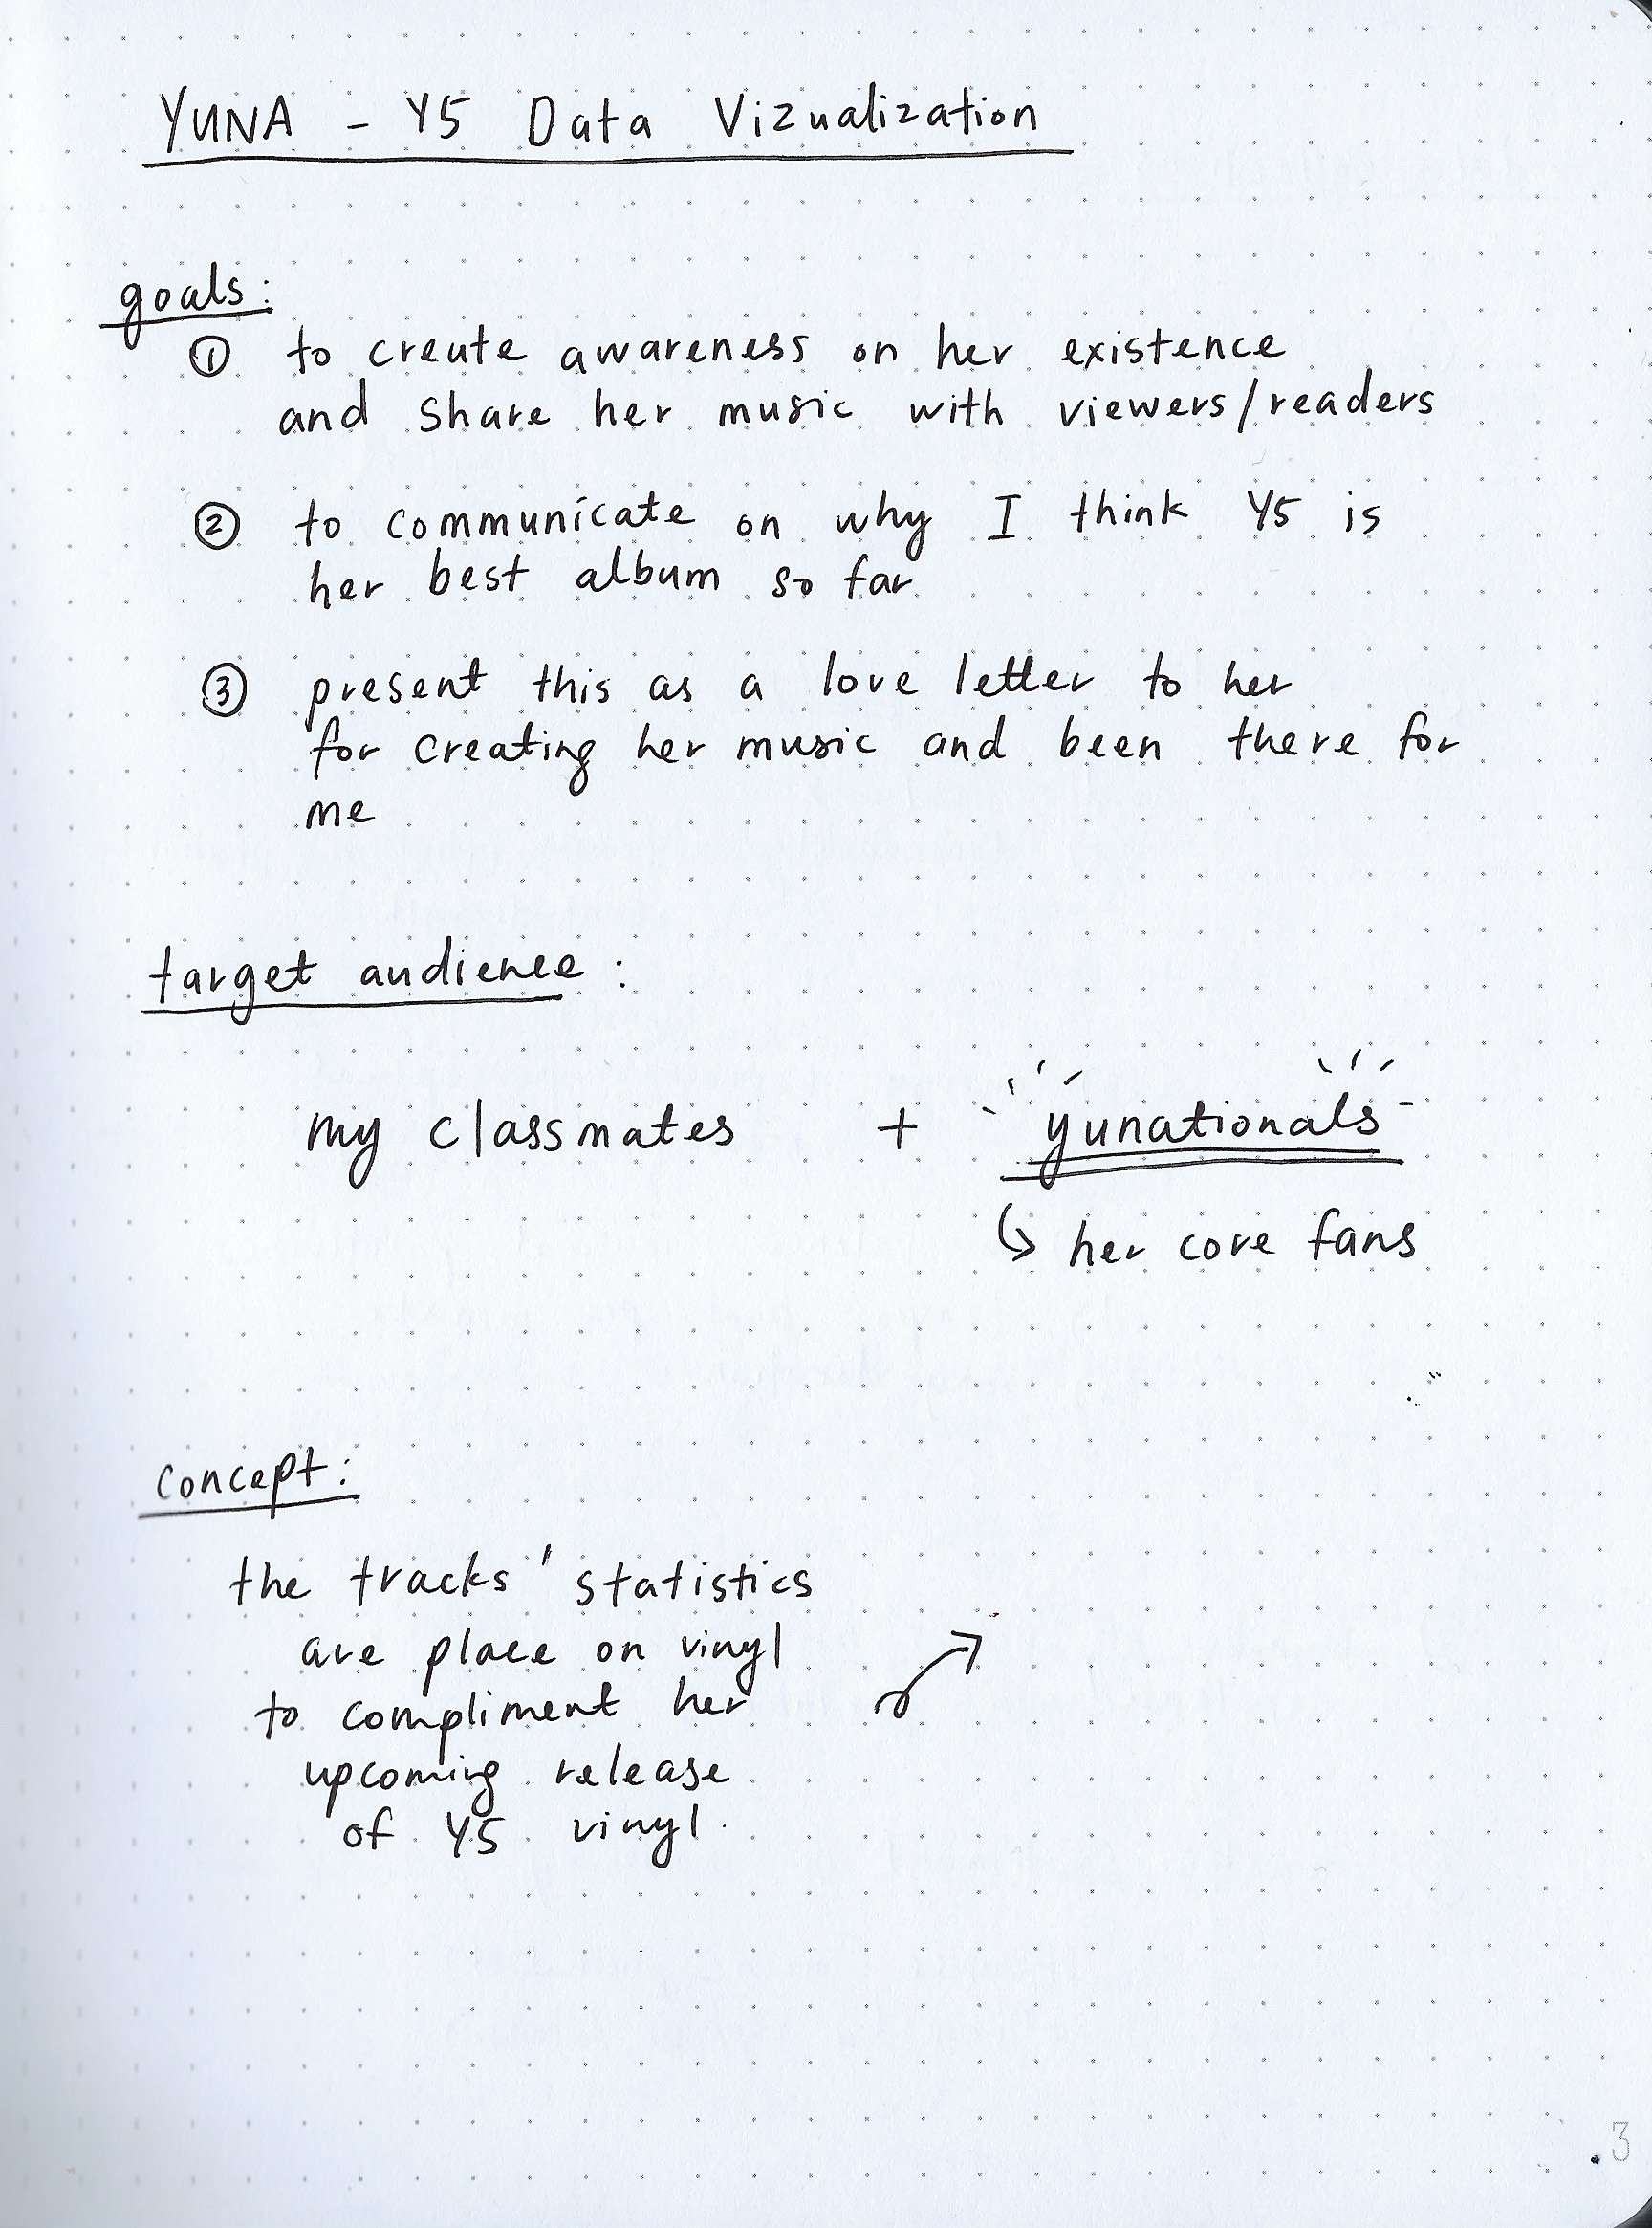 YUNA - Y5 Data Vizualization
goals:
① to create awareness on her existence
and share her music with viewers/readers
② to communicate on why I think Y5 is
her best album so far
③ present this as a love letter to her
for creating her music and been there for
me
target audience :
my classmates + yunationals
↳ her core fans
concept:
the tracks' statistics
are place on vinyl
to compliment her
upcoming release
of Y5 vinyl.
3